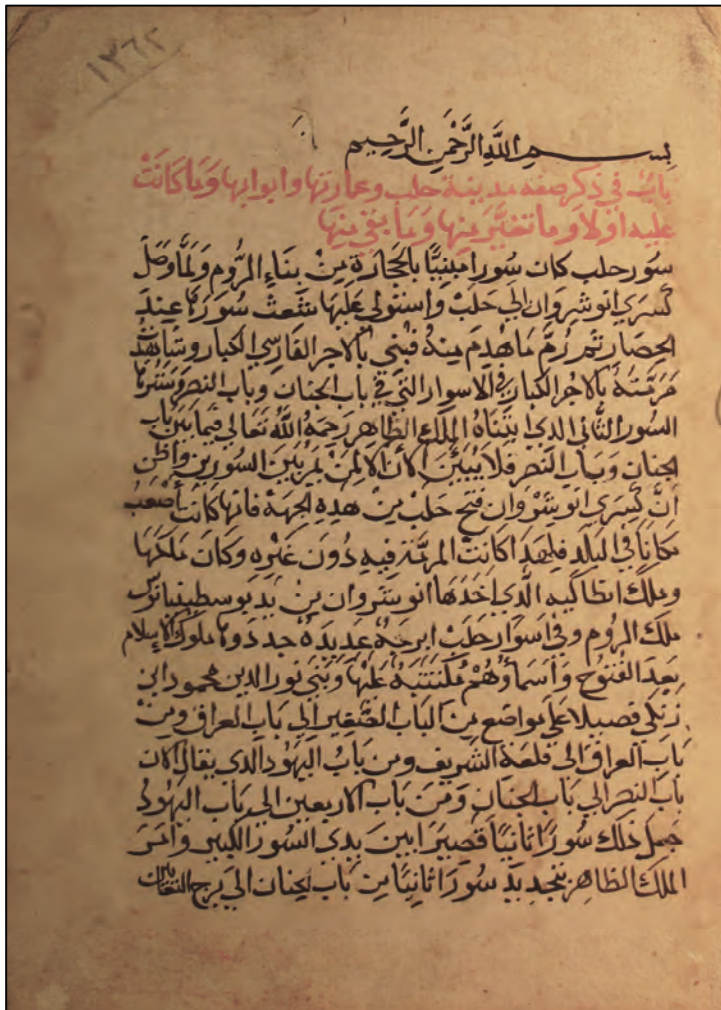 ١٣٦٢
بسم اللَّهِ الرَّحْمَنِ الرَّحِيمِ
باب في ذكر صفه مدينة حلب وعمارتها وابوابها وما كانت
عليه اولا وما تغيَّر منها وما بقي منها
سور حلب كان سورا مبنيًّا بالحجارة من بناء الرُّوم ولمَّا وصل
كسري انوشروان الى حلب واستولي عليها تشعث سورها عند
الحصار ثم رُمَّ ما هدم منه فبني بالاجر الفارسي الكبار وشاهدت
مرمَّته بالاجر الكبار في الاسوار التي في باب الجنان وباب النصر
السور الثاني الدي ابتناه الملك الظاهر رحمه اللَّه تعالي فيما بين باب
الجنان وباب النصر فلا يبين الأن الا لمن يمر بين السورين واظن
انَّ كسري انوشروان فتح حلب من هذه الجهة فانها كانت اضعب
مكانًا في البلد فلهدا كانت المرمَّة فيه دون غيره وكان ملكها
وملك انطاكيه الَّدي اخدها انوشروان من يد يوسطينيانوس
ملك الروم وفي اسوار حلب ابرجة عديدة جددوها ملوك الإسلام
بعد الفتوح واسماؤهم مكتتبة عليها وبني نور الدين محمود ابن
زنكي فصيلا علي مواضع من الباب الصغير الي باب العراق ومن
باب العراق الى قلعة الشريف ومن باب اليهود الدى يقال الان
باب النصر الي باب الجنان ومن باب الاربعين الي باب اليهود
جعل ذلك سورًا ثانيًا قصيرا بين يدى السور الكبير وامر
الملك الظاهر بتجديد سورًا ثانيًا من باب الجنان الي برج